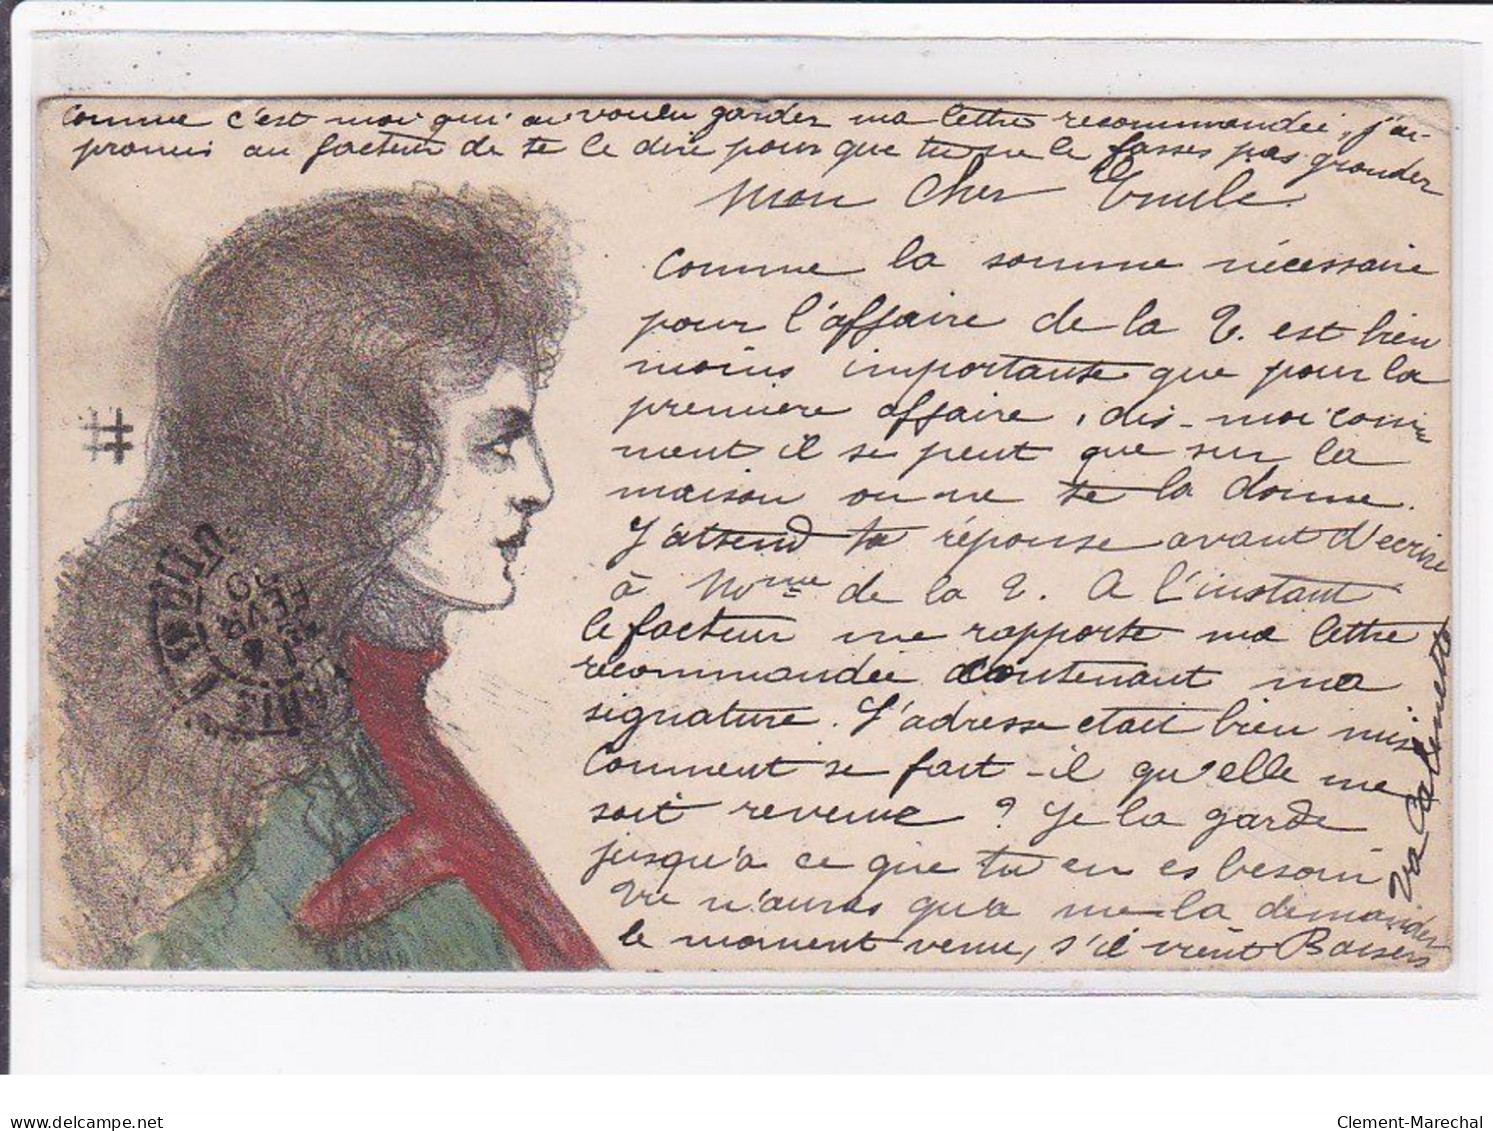 comme c'est moi qui ai voulu garder ma lettre recommandée, j'ai
promis au facteur de te le dire pour que tu ne le fasses pas gronder
Mon cher Emile.
Comme la somme nécessaire
pour l'affaire de la V. est bien
moins importante que pour la
première affaire, dis-moi com
ment il se peut que sur la
maison on ne te la donne.
J'attend ta réponse avant d'ecrire
à Mme de la V. A l'instant
le facteur me rapporte ma lettre
recommandée contenant ma
signature. L'adresse etait bien mise
Comment se fait-il qu'elle me
soit revenue ? Je la garde
jusqu'à ce que tu en es besoin
Tu n'auras qu'a me la demander
le moment venu, s'il vient Baisers
Va
PARIS
FEVR
Clement-Marechal
delcampe.net